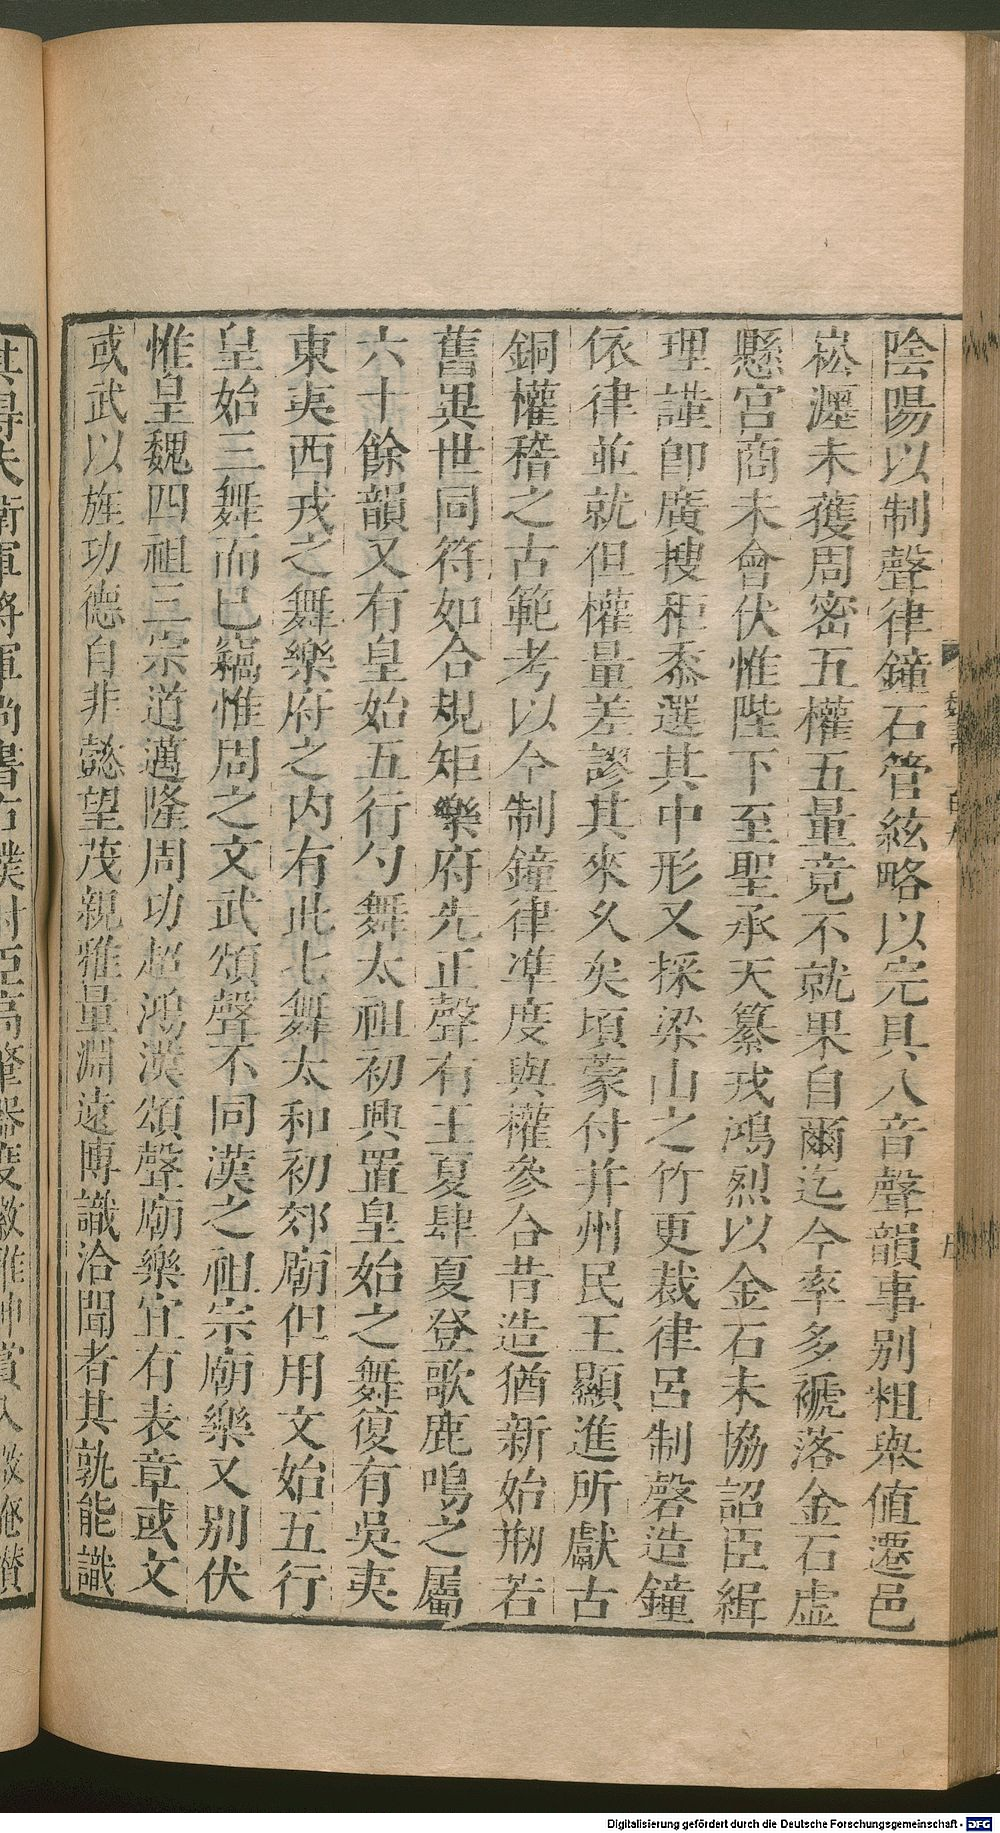 陰陽以制聲律鐘石管絃略以完具八音聲韻事別粗舉值遷邑
崧瀍未獲周密五權五量竟不就果自爾迄今率多褫落金石虛
懸宮商未會伏惟陛下至聖承天纂戎鴻烈以金石未協詔臣緝
理謹即廣搜秬黍選其中形又採梁山之竹更裁律呂制磬造鐘
依律並就但權量差謬其來久矣頃蒙付并州民王顯進所獻古
銅權稽之古範考以今制鐘律準度與權參合昔造猶新始刱若
舊異世同符如合規矩樂府先正聲有王夏肆夏登歌鹿鳴之屬
六十餘韻又有皇始五行勺舞太祖初興置皇始之舞復有吳夷
東夷西戎之舞樂府之內有此七舞太和初郊廟但用文始五行
皇始三舞而已竊惟周之文武頌聲不同漢之祖宗廟樂又別伏
惟皇魏四祖三宗道邁隆周功超鴻漢頌聲廟樂宜有表章或文
或武以旌功德自非懿望茂親雅量淵遠博識洽聞者其孰能識
Digitalisierung gefördert durch die Deutsche Forschungsgemeinschaft - DFG